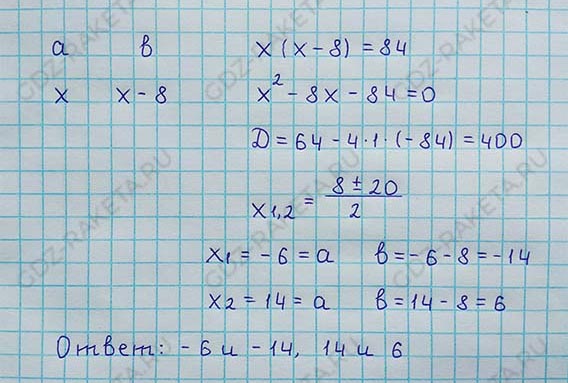 а в x(x-8)=84
x x-8 x²-8x-84=0
D=64-4·1·(-84)=400
x1,2=(8±20)/2
x1=-6=a в=-6-8=-14
x2=14=a в=14-8=6
Ответ: -6 и -14, 14 и 6
GDZ-RAKETA.RU